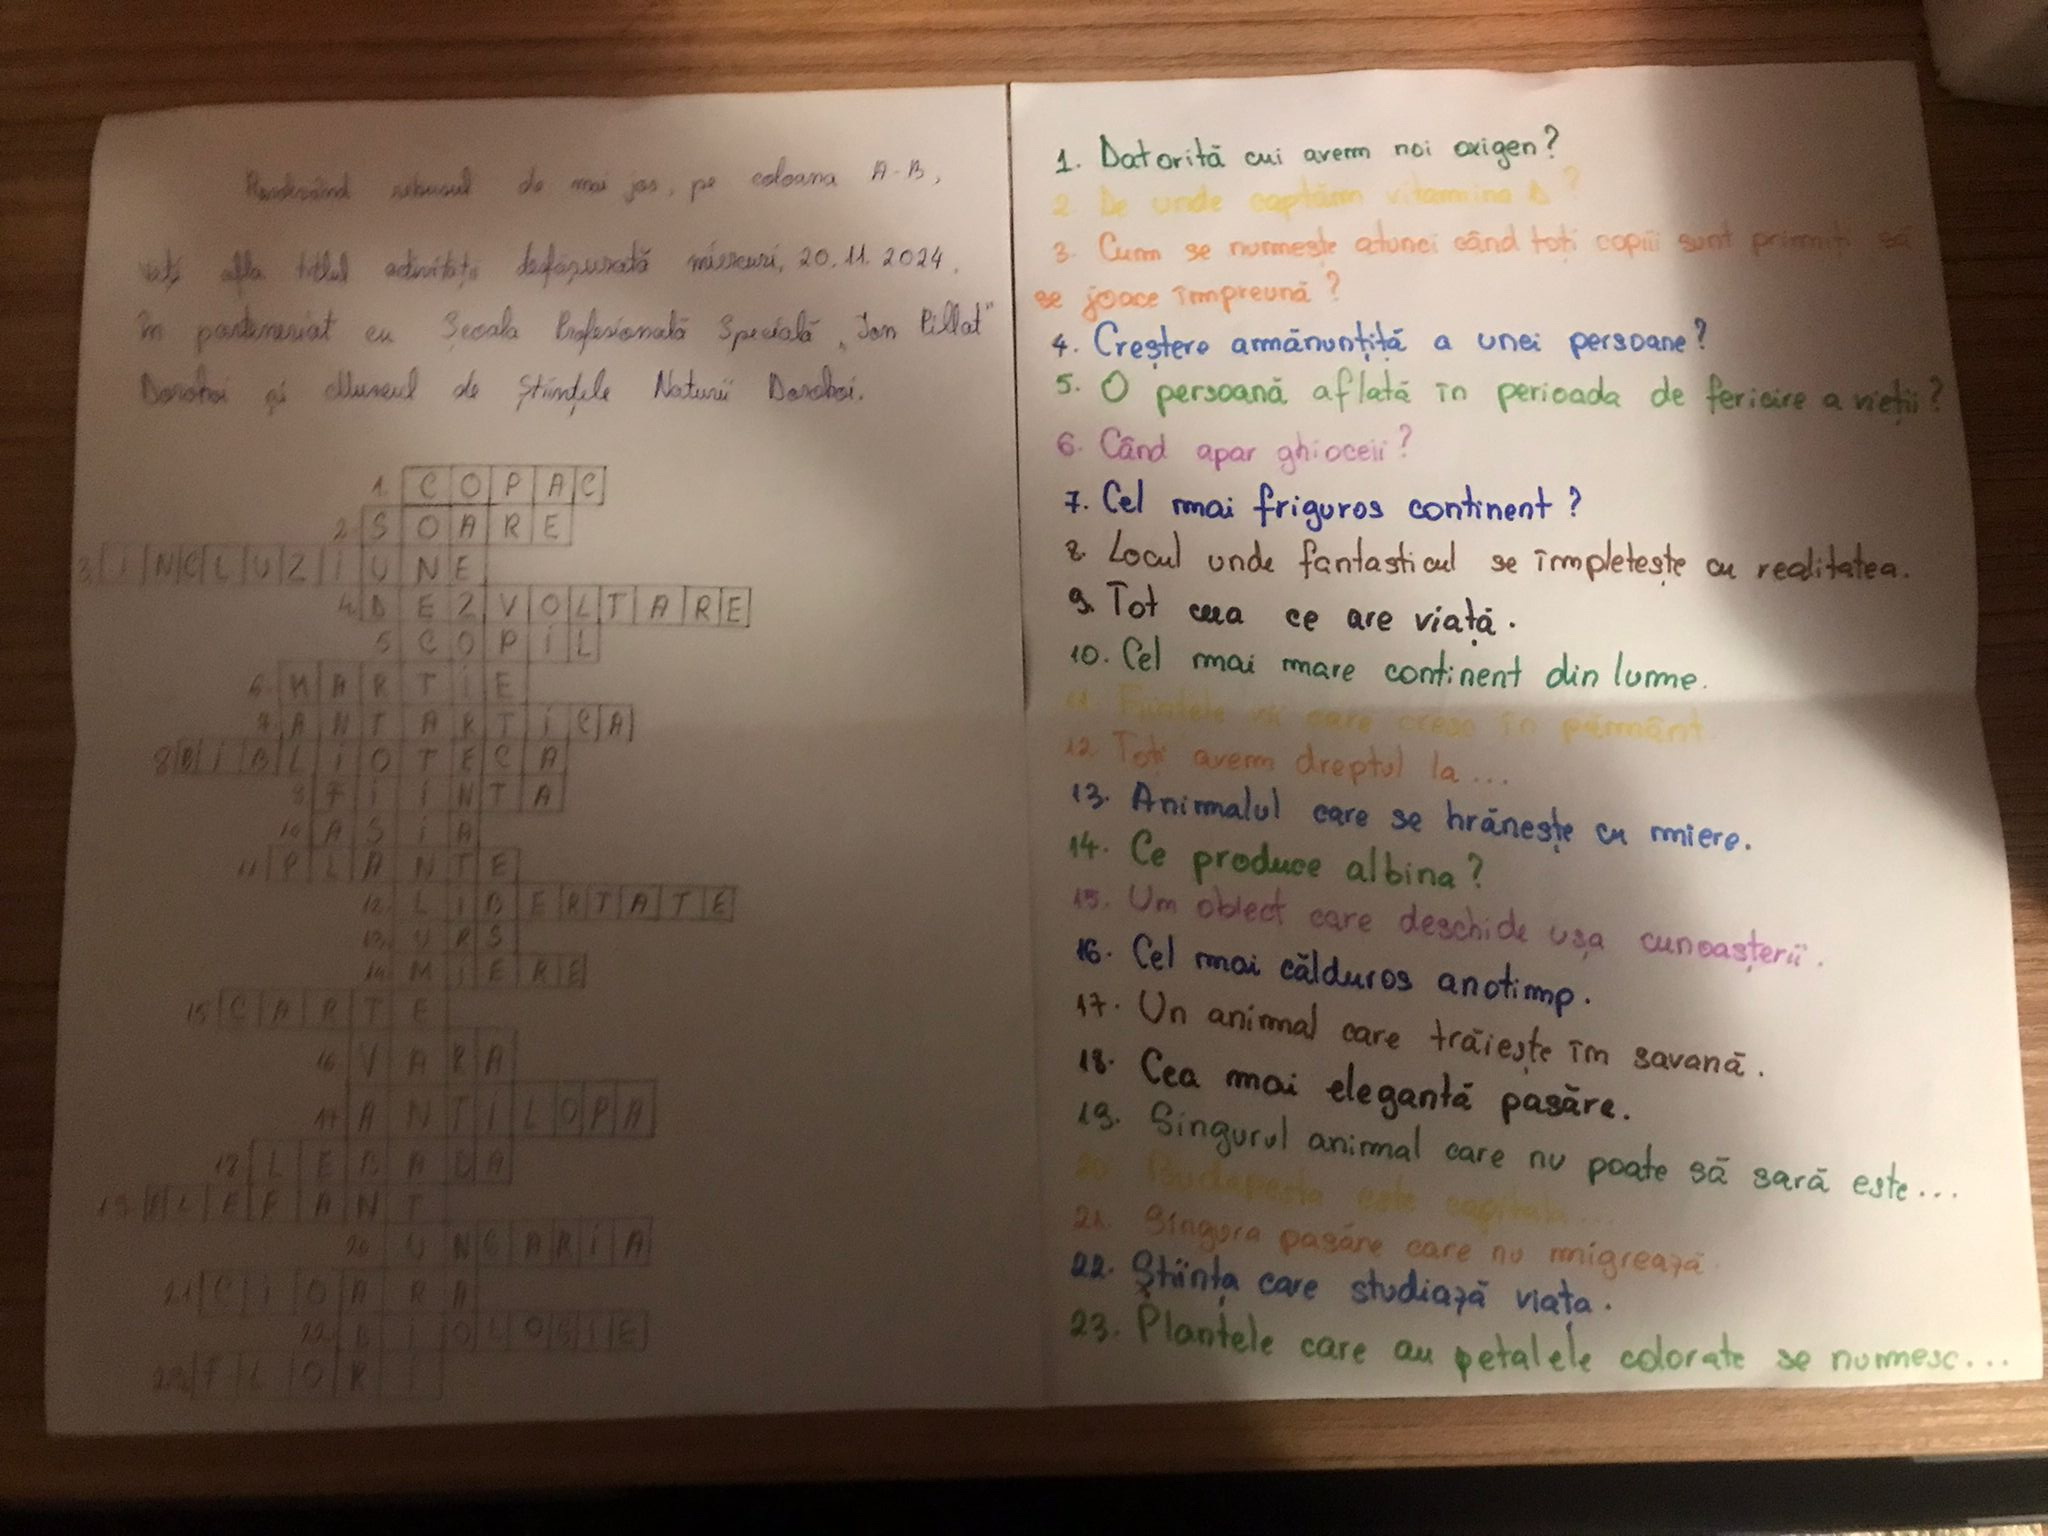 Rezolvând rebusul de mai jos, pe coloana A-B,
veți afla titlul activității desfășurată miercuri, 20.11.2024,
în parteneriat cu Școala Profesională Specială „Ion Pillat"
Dorohoi și Muzeul de Științele Naturii Dorohoi.
1. COPAC
2. SOARE
3. INCLUZIUNE
4. DEZVOLTARE
5. COPIL
6. MARTIE
7. ANTARTICA
8. BIBLIOTECA
9. FIINTA
10. ASIA
11. PLANTE
12. LIBERTATE
13. URS
14. MIERE
15. CARTE
16. VARA
17. ANTILOPA
18. LEBADA
19. ELEFANT
20. UNGARIA
21. CIOARA
22. BIOLOGIE
23. FLORI
1. Datorită cui avem noi oxigen?
2. De unde captăm vitamina D?
3. Cum se numește atunci când toți copiii sunt primiți să
se joace împreună?
4. Creștere amănunțită a unei persoane?
5. O persoană aflată în perioada de fericire a vieții?
6. Când apar ghioceii?
7. Cel mai friguros continent?
8. Locul unde fantasticul se împletește cu realitatea.
9. Tot ceea ce are viață.
10. Cel mai mare continent din lume.
11. Ființele vii care cresc în pământ
12. Toți avem dreptul la...
13. Animalul care se hrănește cu miere.
14. Ce produce albina?
15. Um obiect care deschide ușa cunoașterii.
16. Cel mai călduros anotimp.
17. Un animal care trăiește îm savană.
18. Cea mai elegantă pasăre.
19. Singurul animal care nu poate să sară este...
20. Budapesta este capitala...
21. Singura pasăre care nu migrează
22. Știința care studiază viața.
23. Plantele care au petalele colorate se numesc...